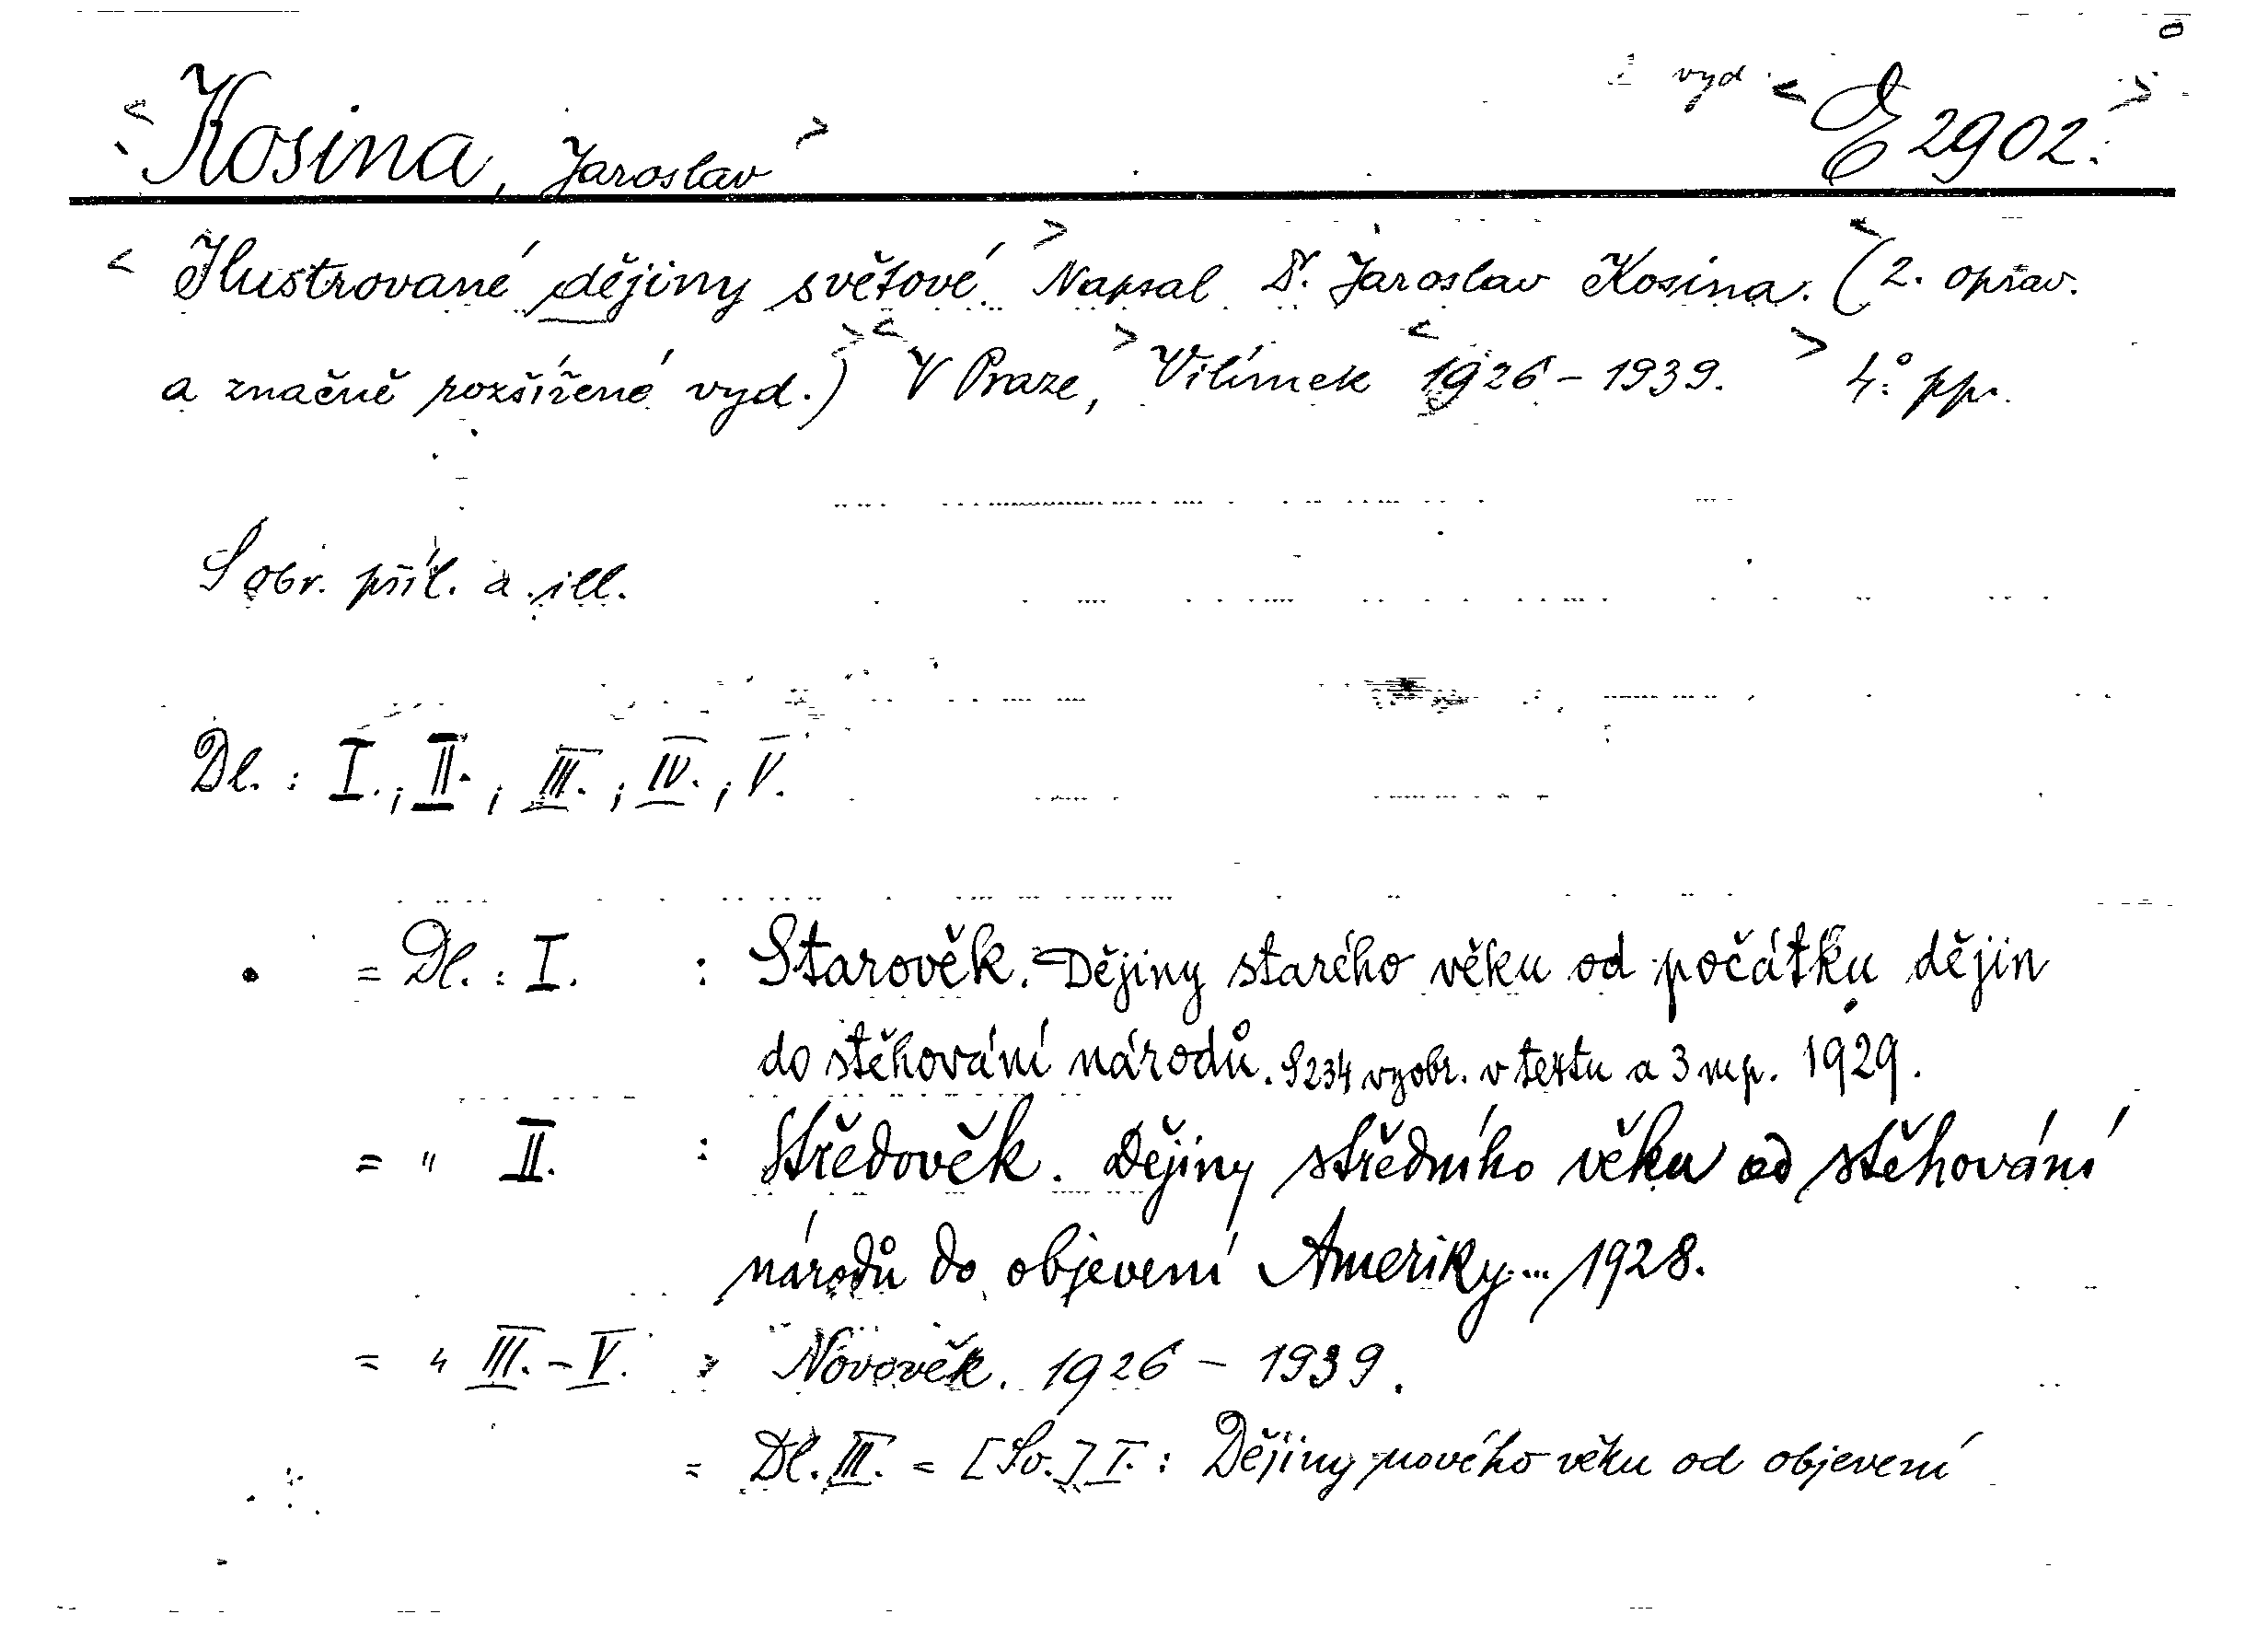 2 vyd
<Kosina, Jaroslav> <E 2902.>
<Ilustrované dějiny světové.> Napsal Dr. Jaroslav Kosina. <(2. oprav.
a značně rozšířené vyd.)> <V Praze,> Vilímek <1926-1939.> 4.° ppr.
S obr. příl. a ill.
Dl. : I. ; II. ; III. ; IV. ; V.
= Dl. : I. : Starověk. Dějiny starého věku od počátku dějin
do stěhování národů. S 234 vyobr. v textu a 3 mp. 1929.
= " II. : Středověk. Dějiny středního věku od stěhování
národů do objevení Ameriky... 1928.
= " III. - V. : Novověk. 1926 - 1939.
= Dl. III. = [Sv.] I. : Dějiny nového věku od objevení